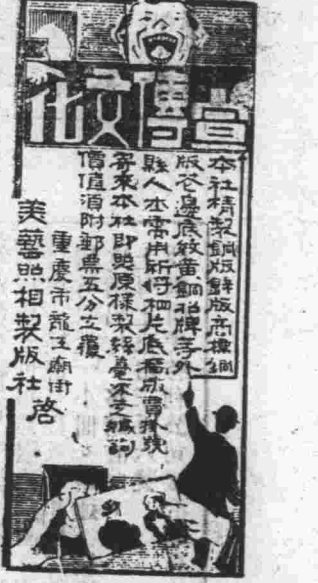 宣傳文化
本社精製銅版鋅版商標銅
版花邊底紋黃銅招牌等外
縣人士需用祈將相片底稿掛號
寄來本社即照原樣製絲毫不走樣詢
價值須附郵票五分立覆
重慶市龍王廟街
美藝照相製版社啓